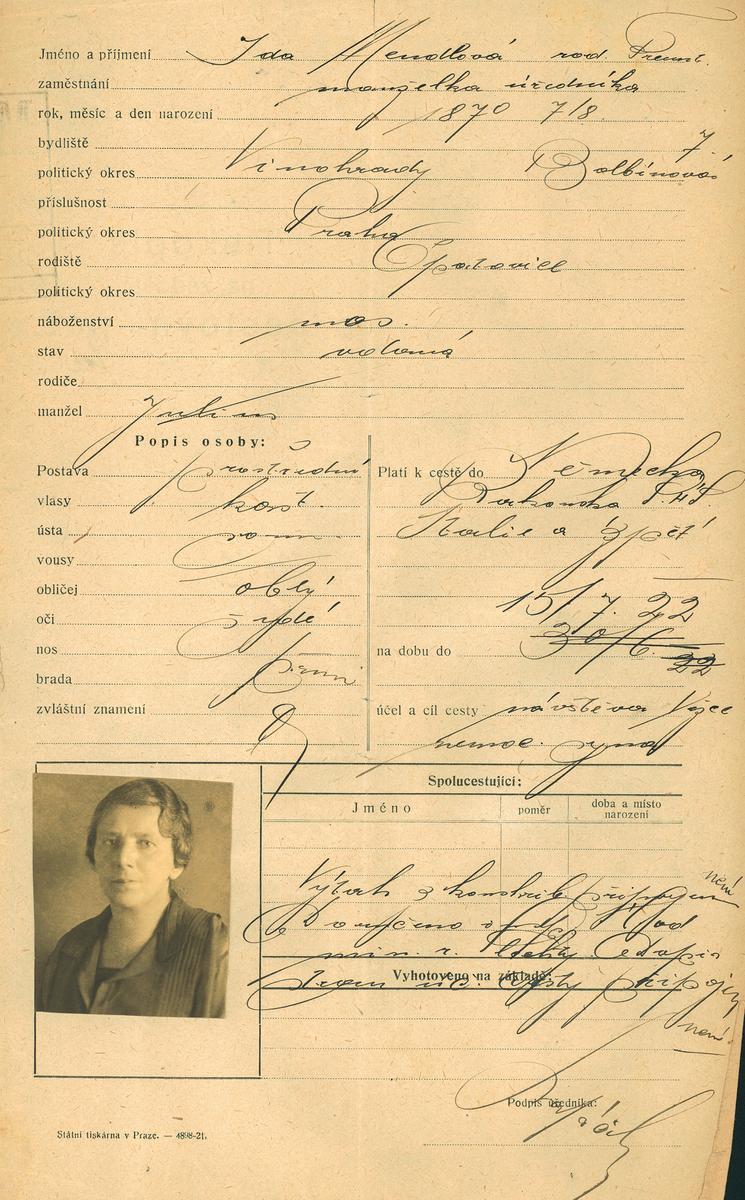 Jméno a příjmení Ida Mendlová rod.
zaměstnání manželka úředníka
rok, měsíc a den narození 1870 7/8.
bydliště 7.
politický okres Vinohrady Balbínova
příslušnost
politický okres Praha
rodiště
politický okres
náboženství mos.
stav vdaná
rodiče
manžel Julius
Popis osoby:
Postava prostřední
vlasy kašt.
ústa
vousy
obličej oblý
oči šedé
nos
brada
zvláštní znamení
Platí k cestě do Německa
Rakouska S.H.S.
Italie a zpět
15/7. 22
na dobu do 30/6. 22
účel a cíl cesty návštěva
nemoc. syna
Spolucestující:
Jméno poměr doba a místo narození
není
Výtah z konskrib. připojen
Doručeno od
min. r.
Vyhotoveno na základě:
není
Podpis úředníka:
Státní tiskárna v Praze. — 4898-21.